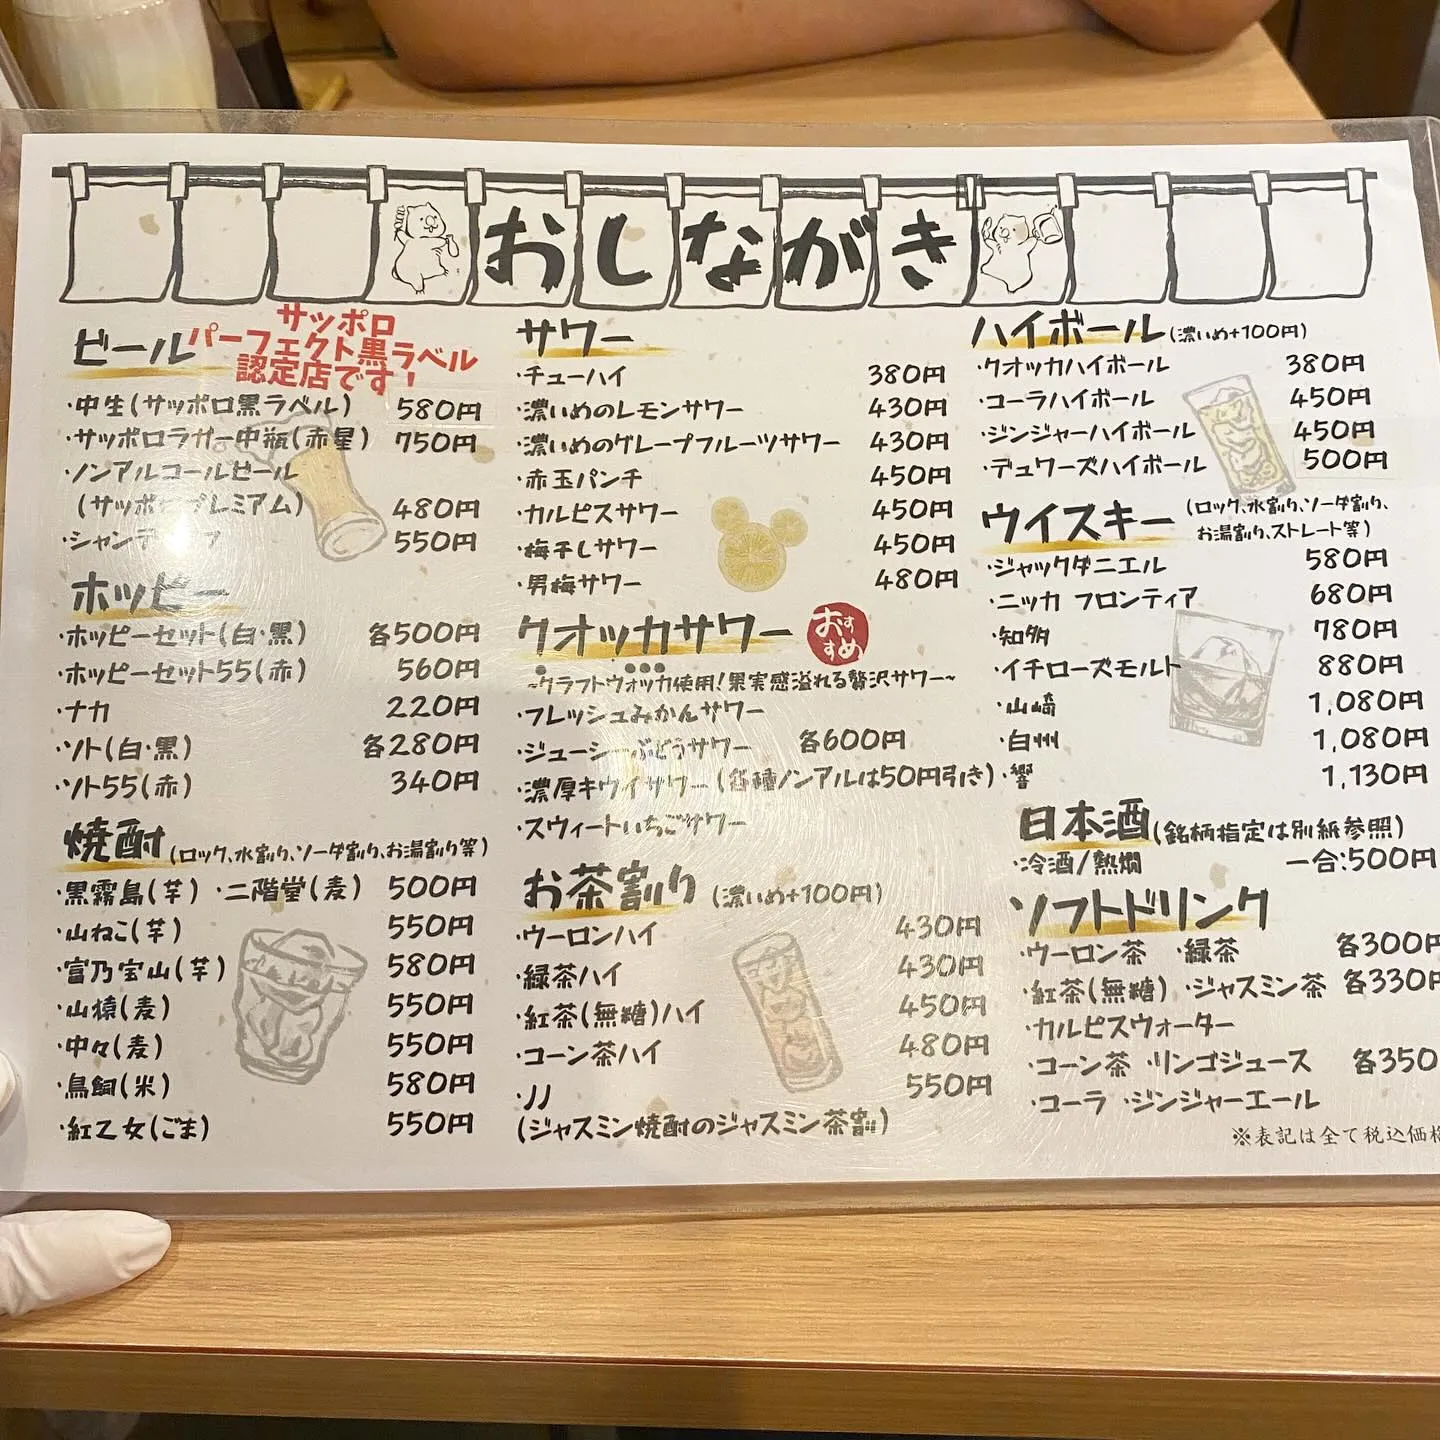 おしながき
ビール
サッポロ
パーフェクト黒ラベル
認定店です!
・中生(サッポロ黒ラベル) 580円
・サッポロラガー中瓶(赤星) 750円
・ノンアルコールビール
(サッポロプレミアム) 480円
・シャンディガフ 550円
ホッピー
・ホッピーセット(白・黒) 各500円
・ホッピーセット55(赤) 560円
・ナカ 220円
・ソト(白・黒) 各280円
・ソト55(赤) 340円
焼酎(ロック、水割り、ソーダ割り、お湯割り等)
・黒霧島(芋) ・二階堂(麦) 500円
・山ねこ(芋) 550円
・富乃宝山(芋) 580円
・山猿(麦) 550円
・中々(麦) 550円
・鳥飼(米) 580円
・紅乙女(ごま) 550円
サワー
・チューハイ 380円
・濃いめのレモンサワー 430円
・濃いめのグレープフルーツサワー 430円
・赤玉パンチ 450円
・カルピスサワー 450円
・梅干しサワー 450円
・男梅サワー 480円
クオッカサワー おすすめ
~クラフトウォッカ使用!果実感溢れる贅沢サワー~
・フレッシュみかんサワー
・ジューシーぶどうサワー 各600円
・濃厚キウイサワー(各種ノンアルは50円引き)
・スウィートいちごサワー
お茶割り(濃いめ+100円)
・ウーロンハイ 430円
・緑茶ハイ 430円
・紅茶(無糖)ハイ 450円
・コーン茶ハイ 480円
・JJ 550円
(ジャスミン焼酎のジャスミン茶割)
ハイボール(濃いめ+100円)
・クオッカハイボール 380円
・コーラハイボール 450円
・ジンジャーハイボール 450円
・デュワーズハイボール 500円
ウイスキー(ロック、水割り、ソーダ割り、
お湯割り、ストレート等)
・ジャックダニエル 580円
・ニッカ フロンティア 680円
・知多 780円
・イチローズモルト 880円
・山崎 1,080円
・白州 1,080円
・響 1,130円
日本酒(銘柄指定は別紙参照)
・冷酒/熱燗 一合:500円
ソフトドリンク
・ウーロン茶 ・緑茶 各300円
・紅茶(無糖) ・ジャスミン茶 各330円
・カルピスウォーター
・コーン茶 ・リンゴジュース 各350
・コーラ ・ジンジャーエール
※表記は全て税込価格